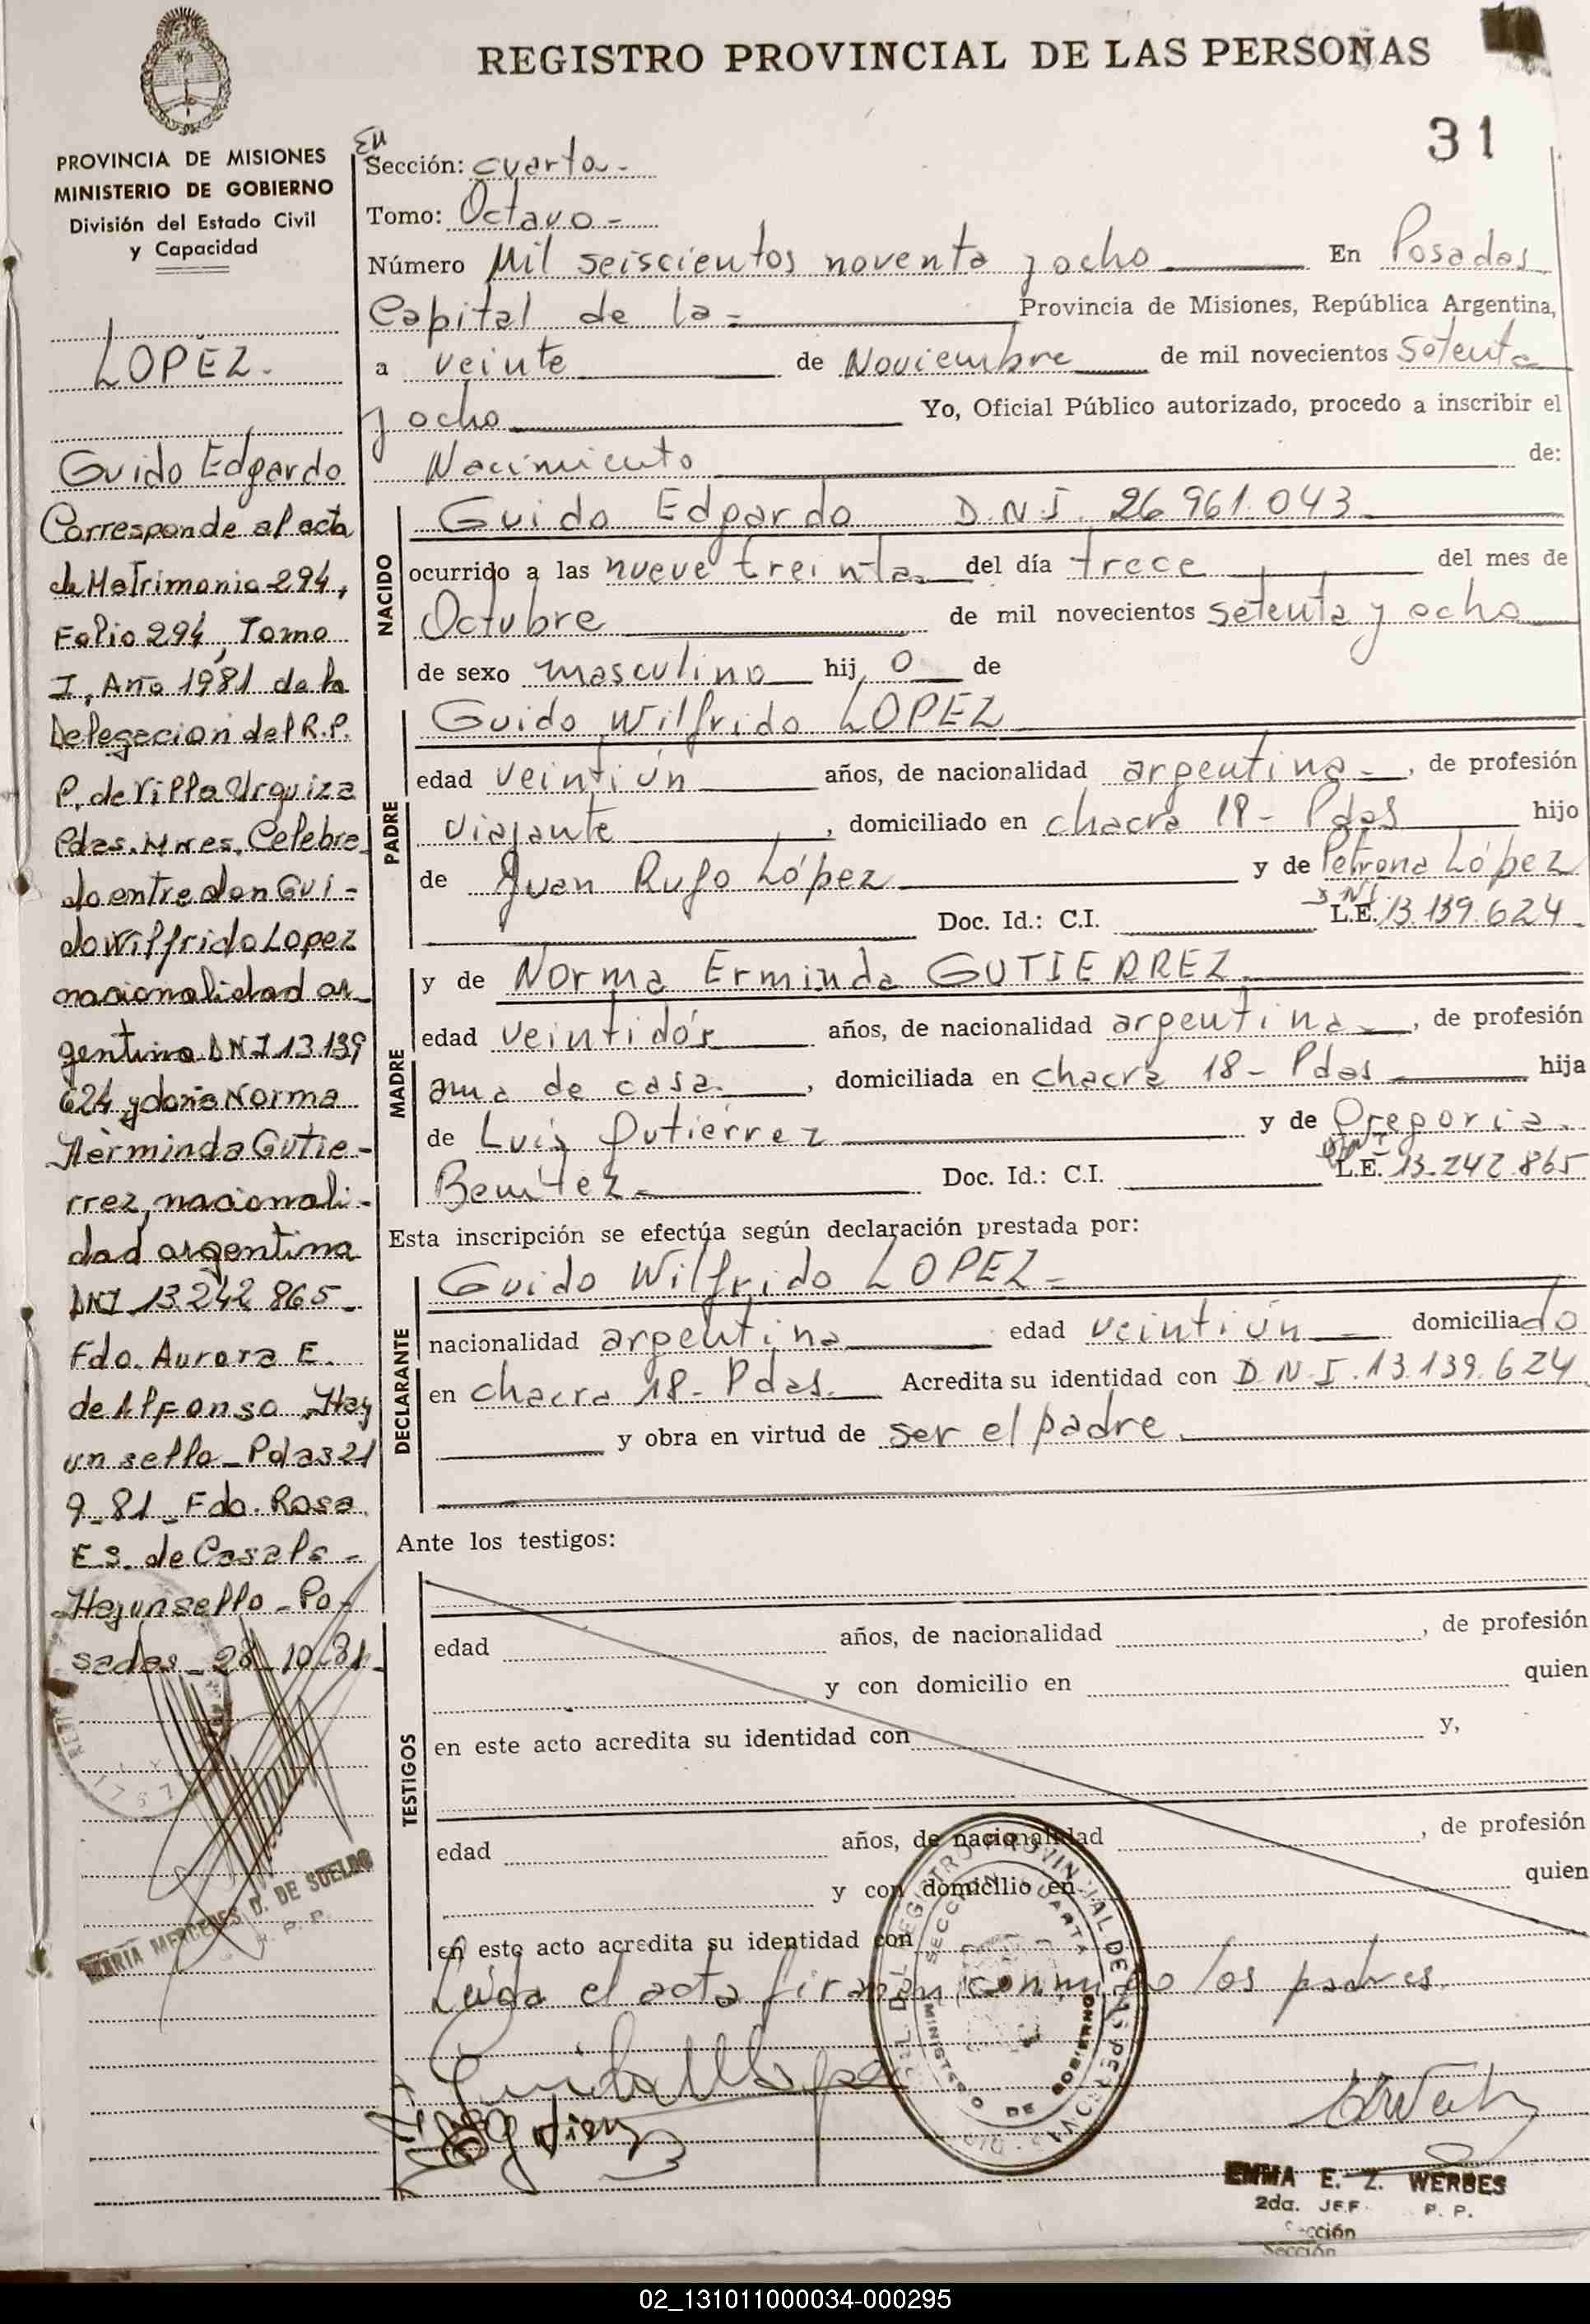 REGISTRO PROVINCIAL DE LAS PERSONAS
31
PROVINCIA DE MISIONES
MINISTERIO DE GOBIERNO
División del Estado Civil
y Capacidad
LOPEZ.
Guido Edgardo
Corresponde al acta
de Matrimonio 294,
Folio 294, Tomo
I, Año 1981 de la
Delegacion del R.P.
P. de Villa Urquiza
Pdas. Mnes. Celebra
do entre don Gui-
do Wilfrido Lopez
nacionalidad ar_
gentina DNI 13 139
624 y doña Norma
Herminda Gutie-
rrez, nacionali-
dad argentina
DNI 13.242 865_
Fdo. Aurora E.
de Alfonso. Hay
un sello_Pdas 21
9_81_Fdo. Rosa
E S. de Casals_
Hay un sello_Po-
sadas_28_10.81_
MARIA MERCEDES D. DE SUELDO
En
Sección: cuarta-
Tomo: Octavo-
Número Mil seiscientos noventa y ocho En Posadas
Capital de la- Provincia de Misiones, República Argentina,
a veinte de Noviembre de mil novecientos setenta
y ocho Yo, Oficial Público autorizado, procedo a inscribir el
Nacimiento de:
NACIDO
Guido Edgardo D.N.I. 26.961.043
ocurrido a las nueve treinta del día trece del mes de
Octubre de mil novecientos setenta y ocho
de sexo masculino hij o de
PADRE
Guido Wilfrido LOPEZ
edad veintiún años, de nacionalidad argentina, de profesión
viajante, domiciliado en chacra 18- Pdas hijo
de Juan Rufo López y de Petrona López
Doc. Id.: C.I. DNI L.E. 13.139.624
MADRE
y de Norma Erminda GUTIERREZ
edad veintidós años, de nacionalidad argentina, de profesión
ama de casa, domiciliada en chacra 18- Pdas hija
de Luis Gutiérrez y de Gregoria
Benítez- Doc. Id.: C.I. DNI L.E. 13.242.865
Esta inscripción se efectúa según declaración prestada por:
DECLARANTE
Guido Wilfrido LOPEZ-
nacionalidad argentina edad veintiún domiciliado
en chacra 18- Pdas. Acredita su identidad con D.N.I. 13.139.624
y obra en virtud de ser el padre
Ante los testigos:
TESTIGOS
edad años, de nacionalidad , de profesión
y con domicilio en quien
en este acto acredita su identidad con y,
edad años, de nacionalidad , de profesión
y con domicilio en quien
en este acto acredita su identidad con
Leída el acta firman conmigo los padres.
REGISTRO PROVINCIAL DE LAS PERSONAS
SECCION CUARTA
MINISTERIO DE GOBIERNO
EMMA E. Z. WERBES
2da. JEF P. P.
Sección
02_131011000034-000295